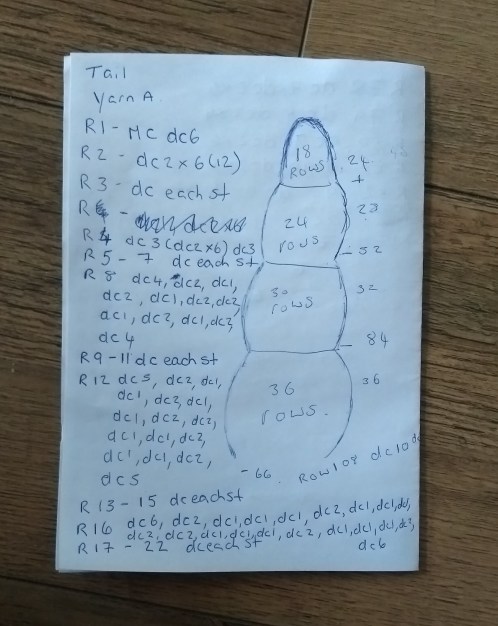 Tail
Yarn A.
R1 - MC dc6
R2 - dc2 x 6 (12)
R3 - dc each st
R4 dc3 (dc2 x 6) dc3
R5 - 7 dc each st
R8 dc4, dc2, dc1,
dc2, dc1, dc2, dc2,
dc1, dc2, dc1, dc2,
dc4
R9 - 11 dc each st
R12 dc5, dc2, dc1,
dc1, dc2, dc1,
dc1, dc2, dc2,
dc1, dc1, dc2,
dc1, dc1, dc2,
dc5
R13 - 15 dc each st
R16 dc6, dc2, dc1, dc1, dc1, dc2, dc1, dc1, dc1,
dc2, dc2, dc1, dc1, dc1, dc2, dc1, dc1, dc1, dc2,
dc6
R17 - 22 dc each st
18
ROWS
24
+
24
rows
- 52
30
rows
32
- 84
36
rows.
36
- 66. ROW 108 dc10